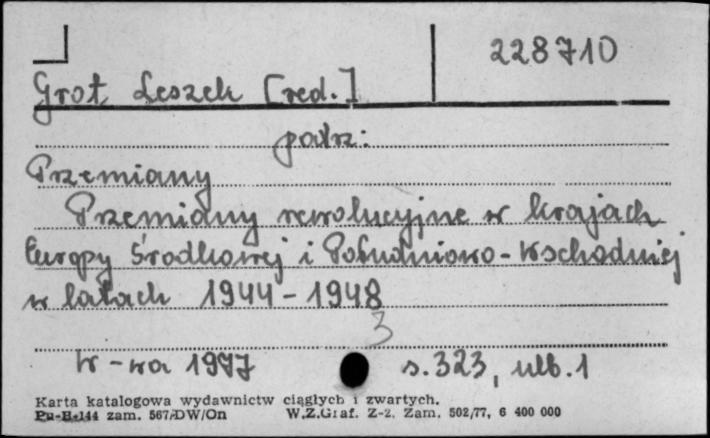 228710
Grot Leszek [red.]
patrz:
Przemiany
Przemiany rewolucyjne w krajach
Europy Środkowej i Południowo-Wschodniej
w latach 1944-1948
3
W-wa 1977 s. 323, nlb. 1
Karta katalogowa wydawnictw ciągłych i zwartych.
Pu-H-144 zam. 567/DW/On W.Z.Graf. Z-2. Zam. 502/77, 6 400 000